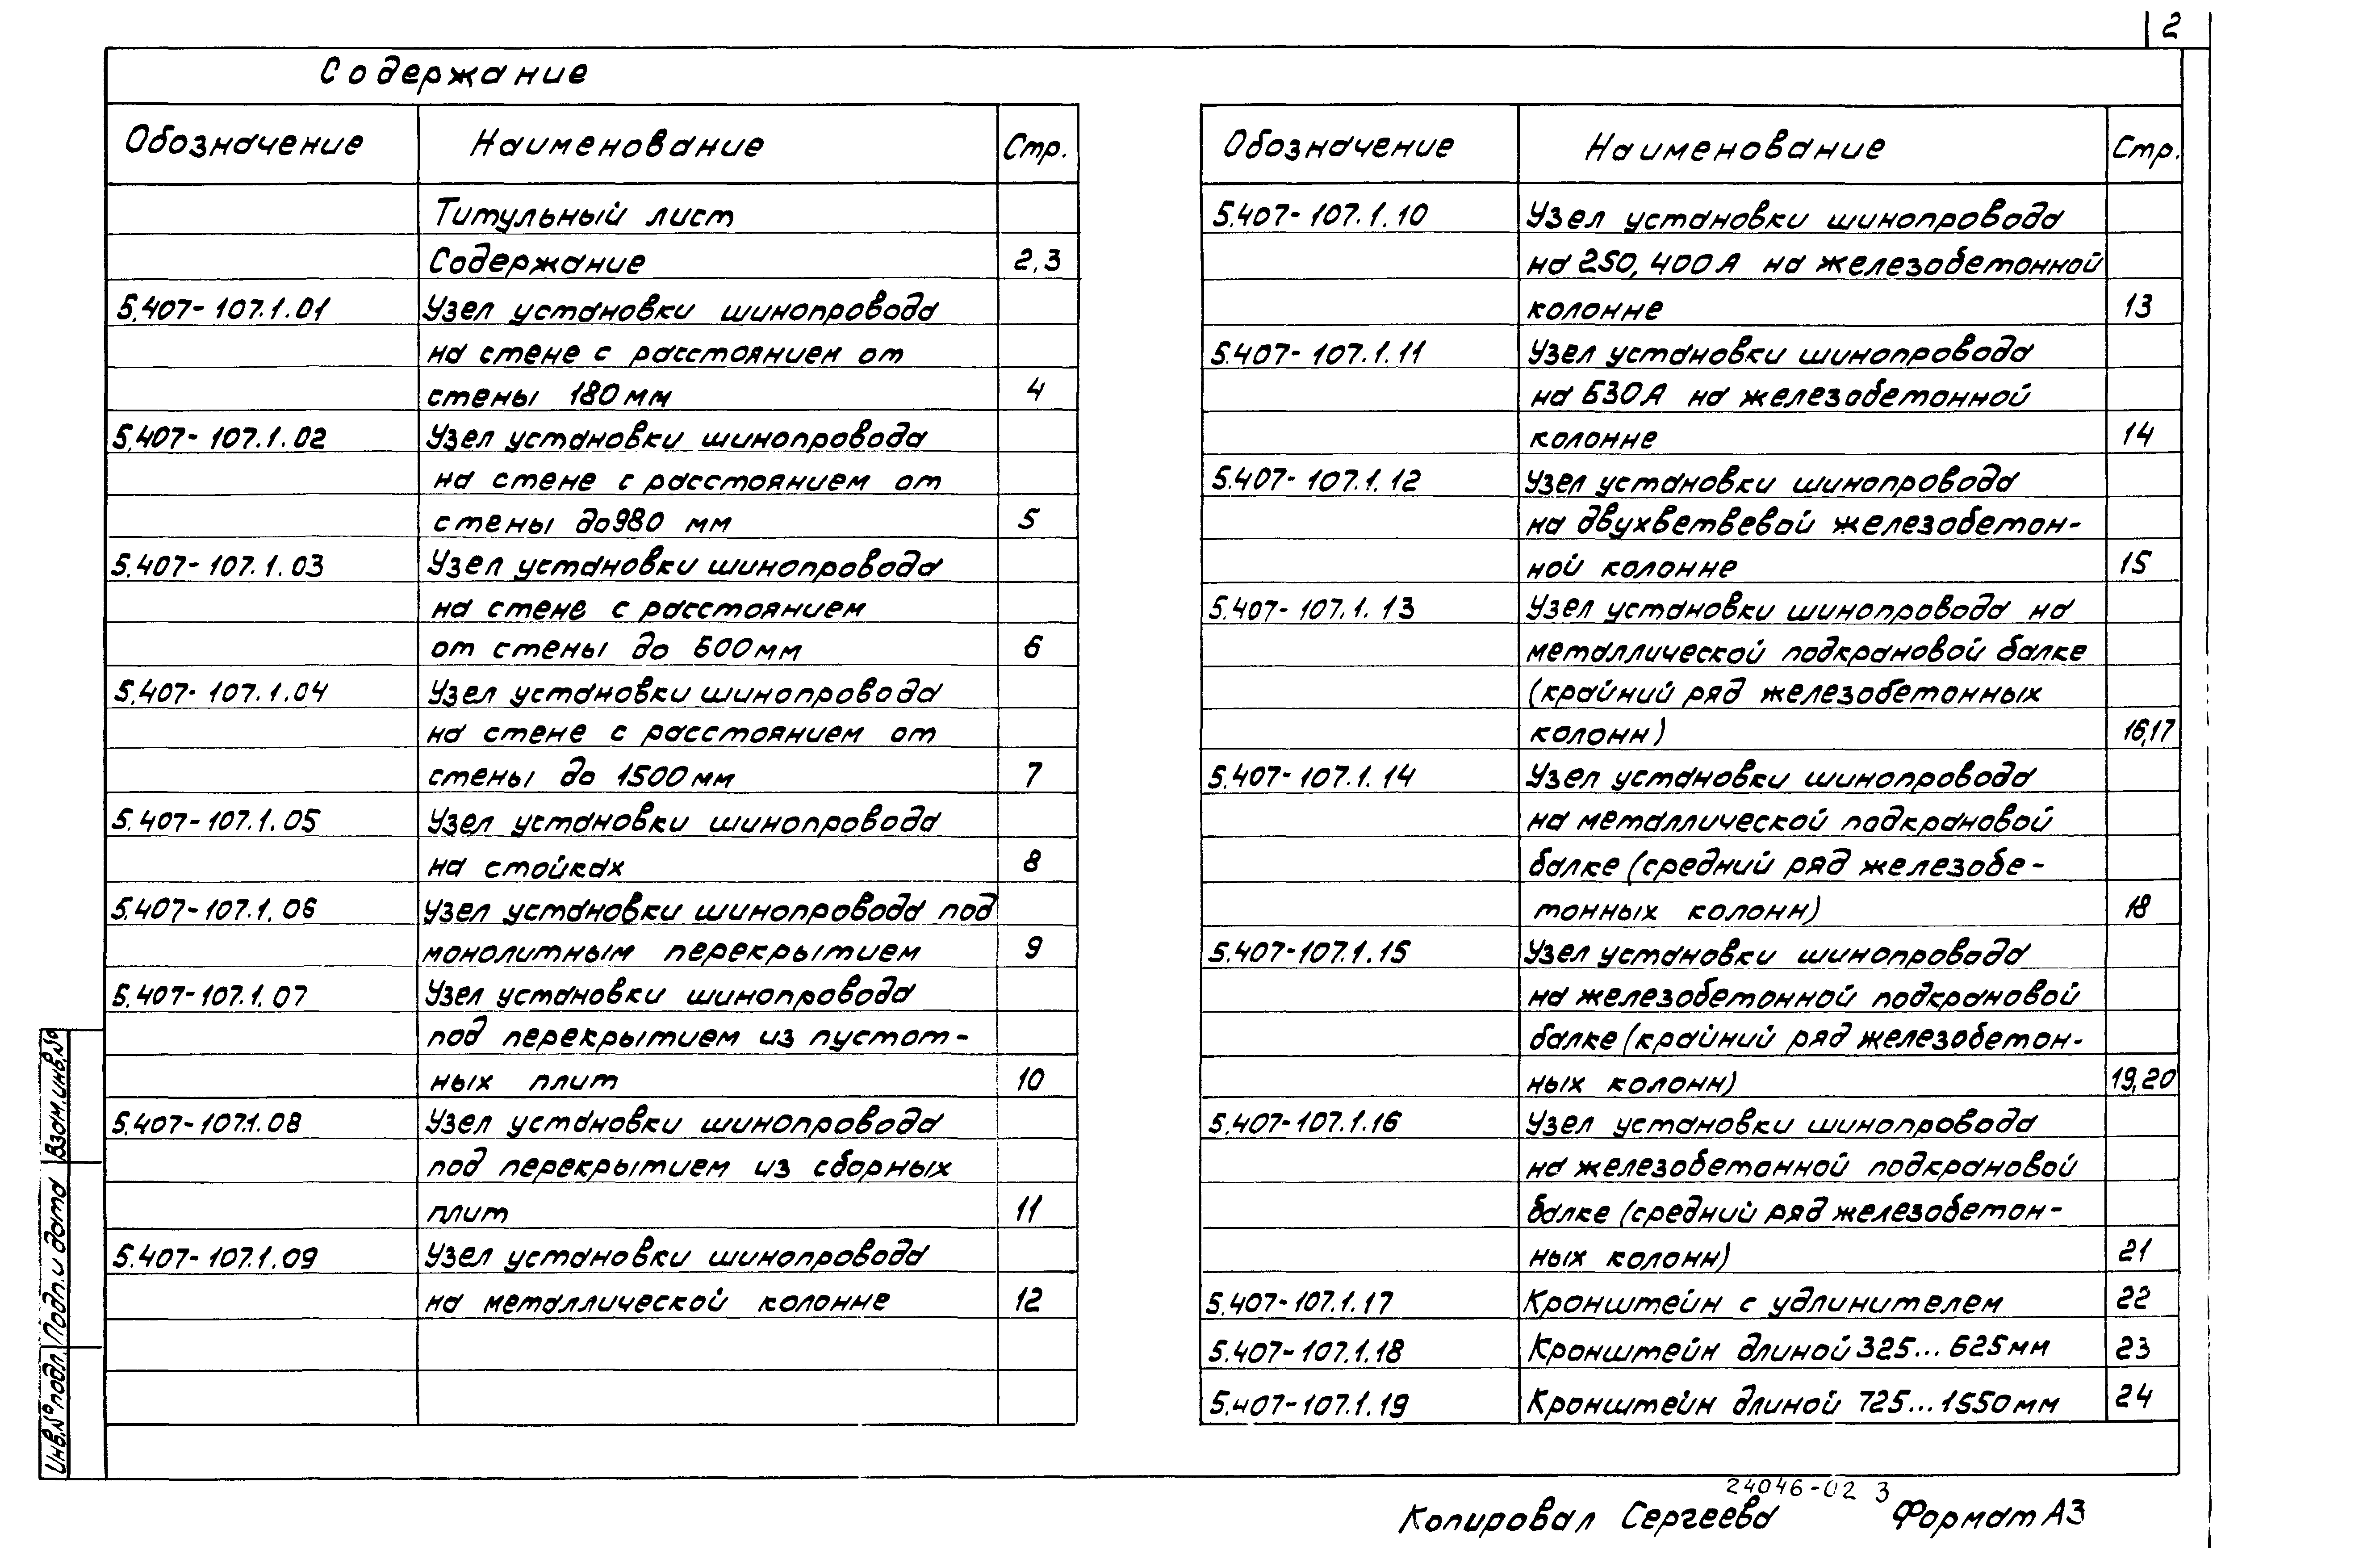 2
Содержание
Обозначение Наименование Стр.
Титульный лист
Содержание 2,3
5.407-107.1.01 Узел установки шинопровода
на стене с расстоянием от
стены 180мм 4
5.407-107.1.02 Узел установки шинопровода
на стене с расстоянием от
стены до 980 мм 5
5.407-107.1.03 Узел установки шинопровода
на стене с расстоянием
от стены до 600мм 6
5.407-107.1.04 Узел установки шинопровода
на стене с расстоянием от
стены до 1500мм 7
5.407-107.1.05 Узел установки шинопровода
на стойках 8
5.407-107.1.06 Узел установки шинопровода под
монолитным перекрытием 9
5.407-107.1.07 Узел установки шинопровода
под перекрытием из пустот-
ных плит 10
5.407-107.1.08 Узел установки шинопровода
под перекрытием из сборных
плит 11
5.407-107.1.09 Узел установки шинопровода
на металлической колонне 12
Обозначение Наименование Стр.
5.407-107.1.10 Узел установки шинопровода
на 250, 400А на железобетонной
колонне 13
5.407-107.1.11 Узел установки шинопровода
на 630А на железобетонной
колонне 14
5.407-107.1.12 Узел установки шинопровода
на двухветвевой железобетон-
ной колонне 15
5.407-107.1.13 Узел установки шинопровода на
металлической подкрановой балке
(крайний ряд железобетонных
колонн) 16,17
5.407-107.1.14 Узел установки шинопровода
на металлической подкрановой
балке (средний ряд железобе-
тонных колонн) 18
5.407-107.1.15 Узел установки шинопровода
на железобетонной подкрановой
балке (крайний ряд железобетон-
ных колонн) 19,20
5.407-107.1.16 Узел установки шинопровода
на железобетонной подкрановой
балке (средний ряд железобетон-
ных колонн) 21
5.407-107.1.17 Кронштейн с удлинителем 22
5.407-107.1.18 Кронштейн длиной 325...625мм 23
5.407-107.1.19 Кронштейн длиной 725...1550мм 24
Взам.инв.№
Подп.и дата
Инв.№подл.
24046-02 3
Копировал Сергеева Формат А3